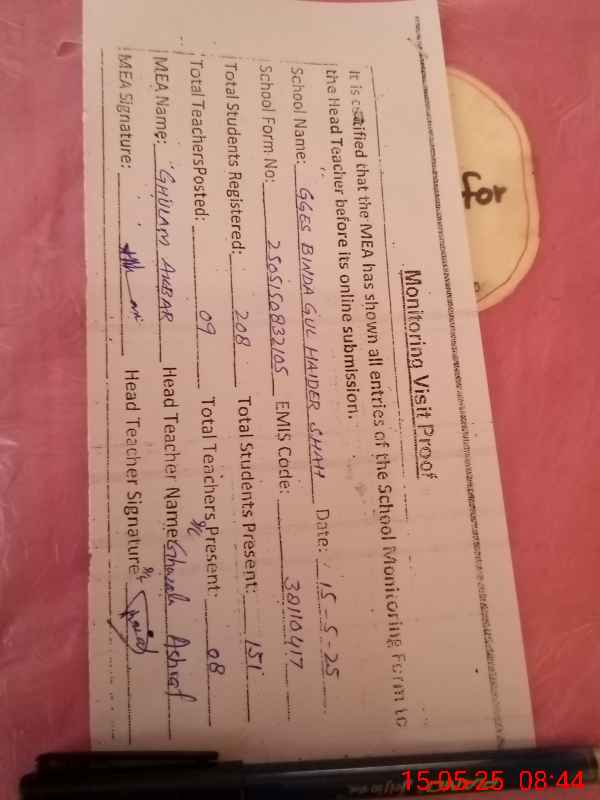 Monitoring Visit Proof
It is certified that the MEA has shown all entries of the School Monitoring Form to
the Head Teacher before its online submission.
School Name: GGES BINDA GUL HAIDER SHAH Date: 15-5-25
School Form No: 2505150832105 EMIS Code: 38110417
Total Students Registered: 208 Total Students Present: 151
Total TeachersPosted: 09 Total Teachers Present: 08
MEA Name: GHULAM AKBAR Head Teacher Name: Ghazala Ashraf
MEA Signature: Head Teacher Signature:
for
15-05-25 08:44